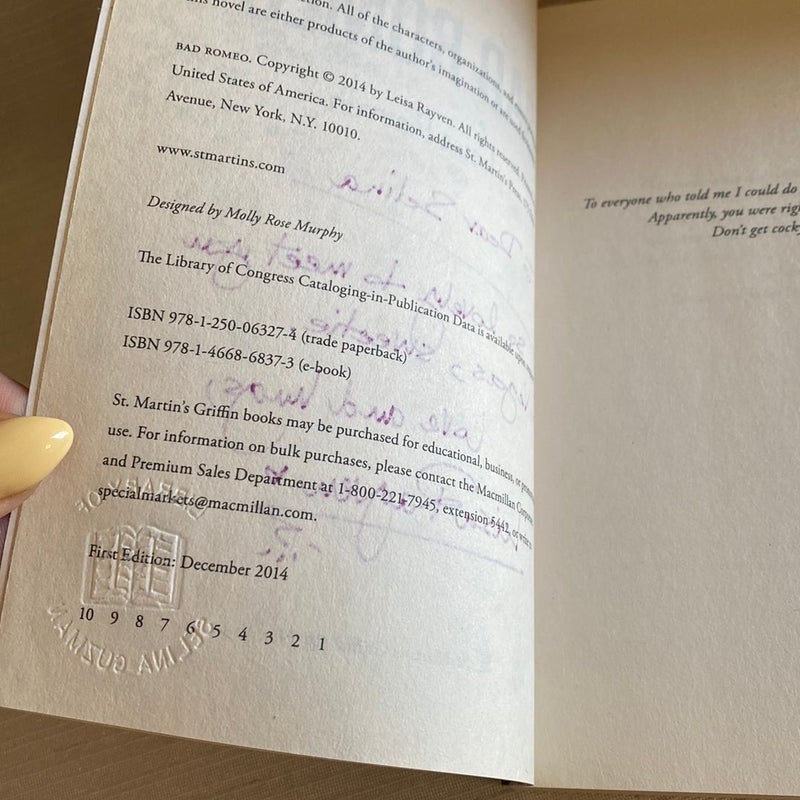 ction. All of the characters, organizations, and
this novel are either products of the author's imagination or are used
BAD ROMEO. Copyright © 2014 by Leisa Rayven. All rights reserved. Printed
United States of America. For information, address St. Martin's Press, 175
Avenue, New York, N.Y. 10010.
www.stmartins.com
Designed by Molly Rose Murphy
The Library of Congress Cataloging-in-Publication Data is available upon
ISBN 978-1-250-06327-4 (trade paperback)
ISBN 978-1-4668-6837-3 (e-book)
St. Martin's Griffin books may be purchased for educational, business, or
use. For information on bulk purchases, please contact the Macmillan Corporate
and Premium Sales Department at 1-800-221-7945, extension 5442, or write to
specialmarkets@macmillan.com.
First Edition: December 2014
10 9 8 7 6 5 4 3 2 1
LIBRARY OF
SELINA GUZMAN
Dear Selina
so lovely to meet you
sweetie
love and
To everyone who told me I could do
Apparently, you were righ
Don't get cocky